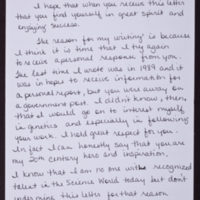 I hope that when you receive this letter
that you find yourself in great spirit and
enjoying success.
The reason for my writing is because
I think it is time that I try again
to receive a personal response from you.
The last time I wrote was in 1989 and it
was in hope to receive information for
a personal report, but you were away on
a government post. I didn't know, then,
that I would go on to interest myself
in genetics and especially in following
your work. I hold great respect for you.
In fact I can honestly say that you are
my 20th century hero and inspiration.
I know that I am no one with recognized
talent in the Science World today but don't
undermine this letter for that reason